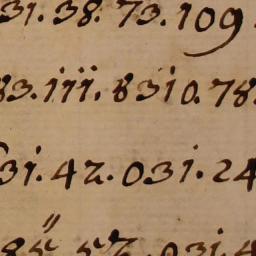 31. 38. 73. 109.
83. iii. 8310. 78
31. 42. 031. 24